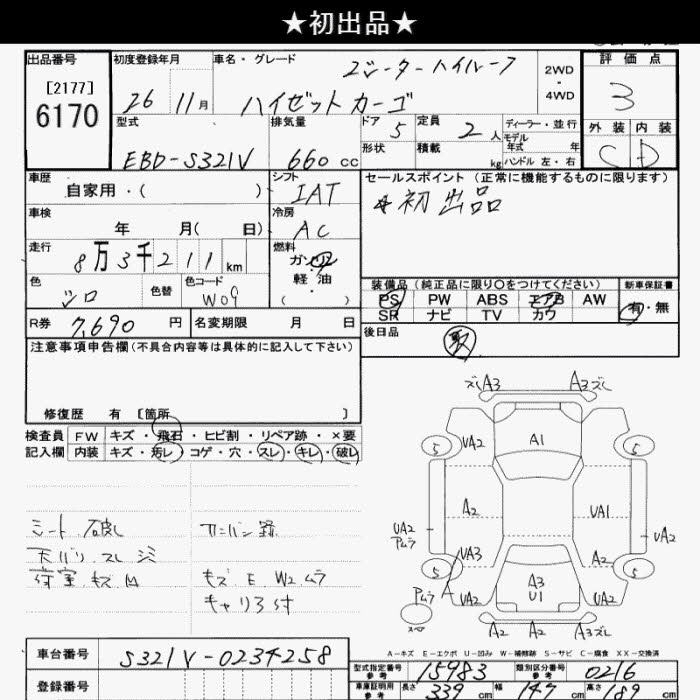 ★初出品★
出品番号
[2177]
6170
初度登録年月
26 11月
車名・グレード
ハイゼットカーゴ
2WD
・
4WD
評価点
3
外装 内装
C D
型式
EBD-S321V
排気量
660 cc
ドア 5
形状
定員 2人
積載 kg
ディーラー・並行
モデル年式 年
ハンドル 左・右
車歴
自家用・( )
シフト
IAT
セールスポイント (正常に機能するものに限ります)
初出品
車検
年 月( 日)
冷房
AC
走行
8万3千211km
燃料
軽油
( ・ )
色
シロ
色替
色コード
W09
装備品 (純正品に限り〇をつけてください)
新車保証書
PS PW ABS エアB AW
SR ナビ TV カワ
有・無
R券 7,690 円
名変期限 月 日
後日品
注意事項申告欄(不具合内容等は具体的に記入して下さい)
修復歴 有 [箇所 ]
検査員
記入欄
FW キズ・飛石・ヒビ割・リペア跡・×要
内装 キズ・汚レ・コゲ・穴・スレ・キレ・破レ
シート 破レ
キズ E W2 ムラ
ズレA3 A3ズレ
5 UA2 A1 5
A2 UA1
UA2
ムラ
UA2
UA3 A2
5 A3 5
U1
UA2 UA2
スペア
A2 A2 A3ズレ
A-キズ E-エクボ U-凹み W-補修跡 S-サビ C-腐食 XX-交換済
車台番号 S321V-0234258
登録番号
型式指定番号
参考
15983
類別区分番号
参考
0216
車庫証明用
参考
長さ 339 cm
幅 147 cm
高さ cm